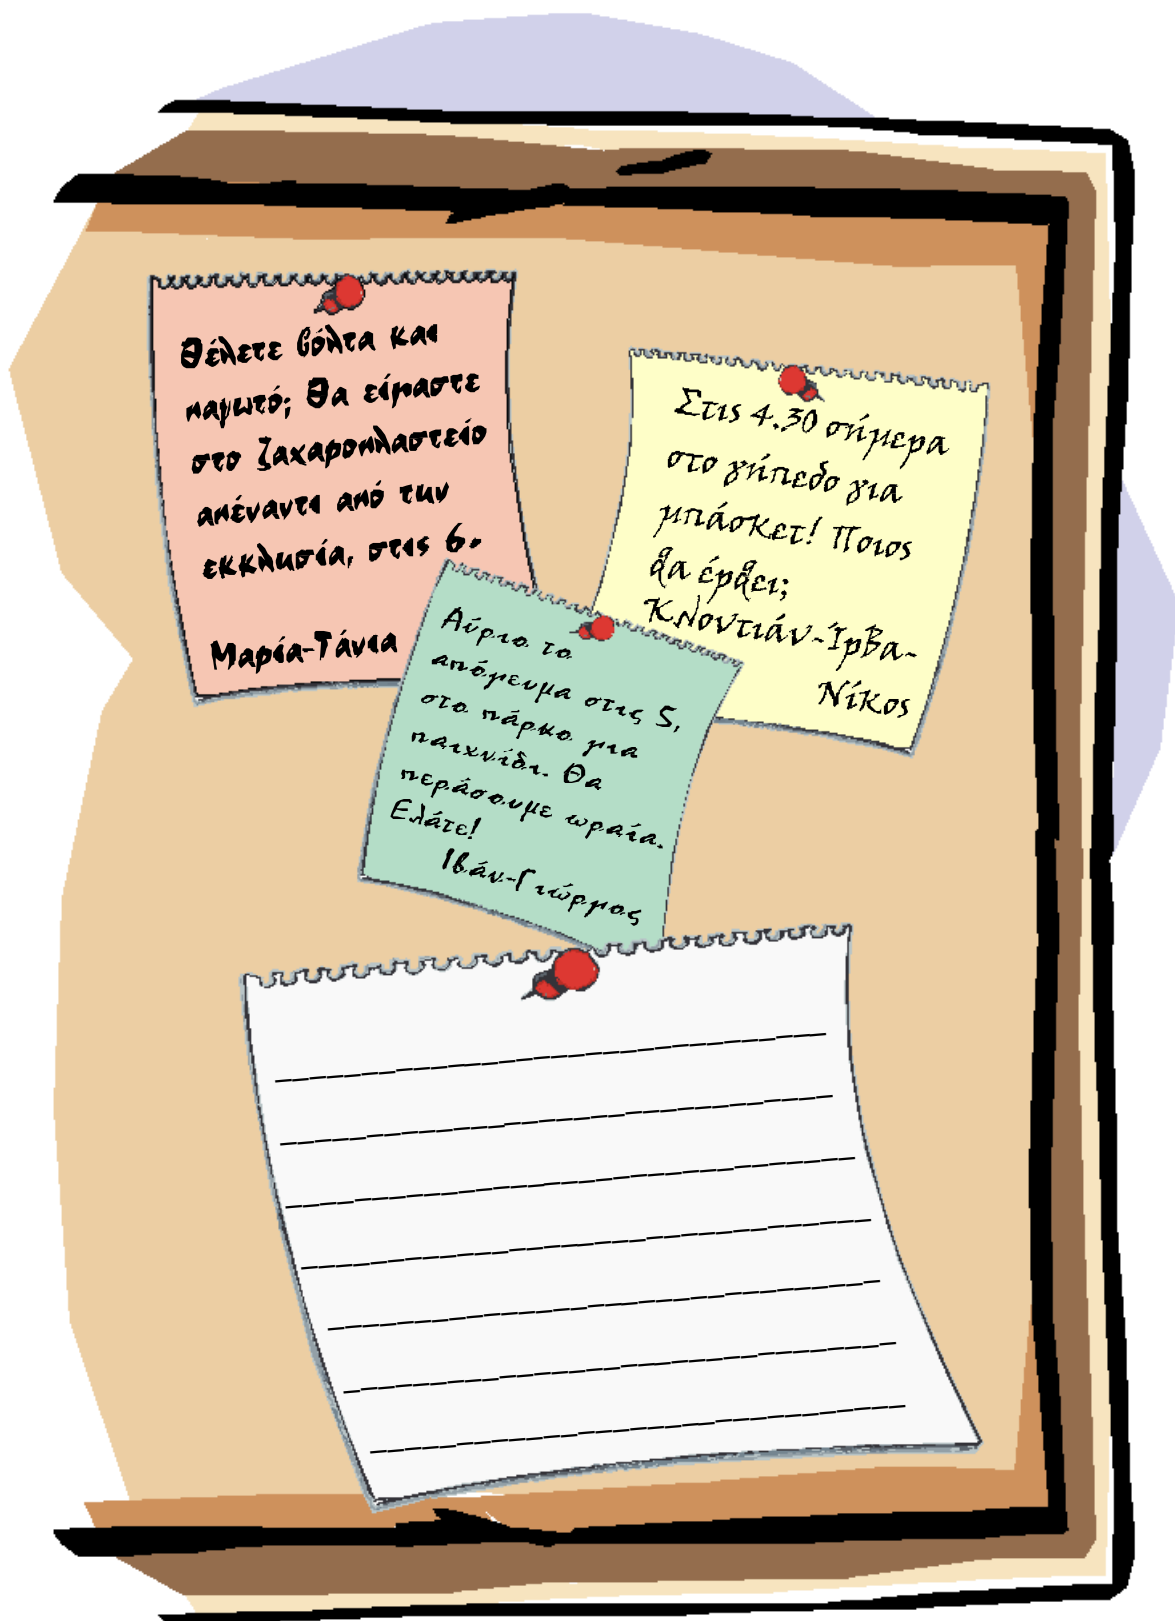 Θέλετε βόλτα και
παγωτό; Θα είμαστε
στο ζαχαροπλαστείο
απέναντι από την
εκκλησία, στις 6.
Μαρία-Τάνια
Στις 4.30 σήμερα
στο γήπεδο για
μπάσκετ! Ποιος
θα έρθει;
Κλοντιάν-Ίρβα-
Νίκος
Αύριο το
απόγευμα στις 5,
στο πάρκο για
παιχνίδι. Θα
περάσουμε ωραία.
Ελάτε!
Ιβάν-Γιώργος